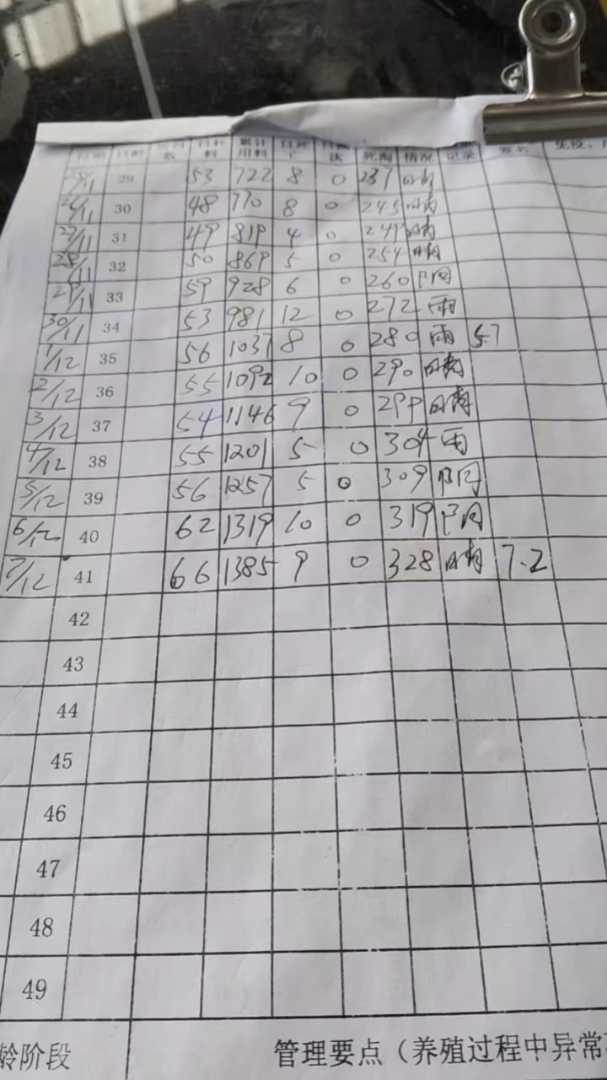 日期 日龄 数 日耗料 累计用料 日死亡 日淘汰 死淘 情况 记录 签名 免疫、用
25/11 29 53 722 8 0 237 晴
26/11 30 48 770 8 0 245 晴
27/11 31 49 819 4 0 249 晴
28/11 32 50 869 5 0 254 晴
29/11 33 59 928 6 0 260 阴
30/11 34 53 981 12 0 272 雨
1/12 35 56 1037 8 0 280 雨 5.7
2/12 36 55 1092 10 0 290 晴
3/12 37 54 1146 9 0 299 晴
4/12 38 55 1201 5 0 304 雨
5/12 39 56 1257 5 0 309 阴
6/12 40 62 1319 10 0 319 阴
7/12 41 66 1385 9 0 328 晴 7.2
42
43
44
45
46
47
48
49
龄阶段 管理要点（养殖过程中异常